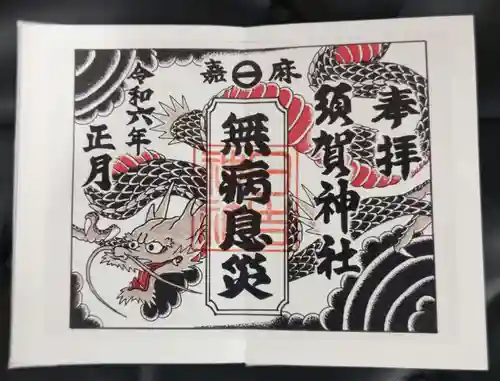 奉拝
須賀神社
嘉麻
無病息災
令和六年
正月